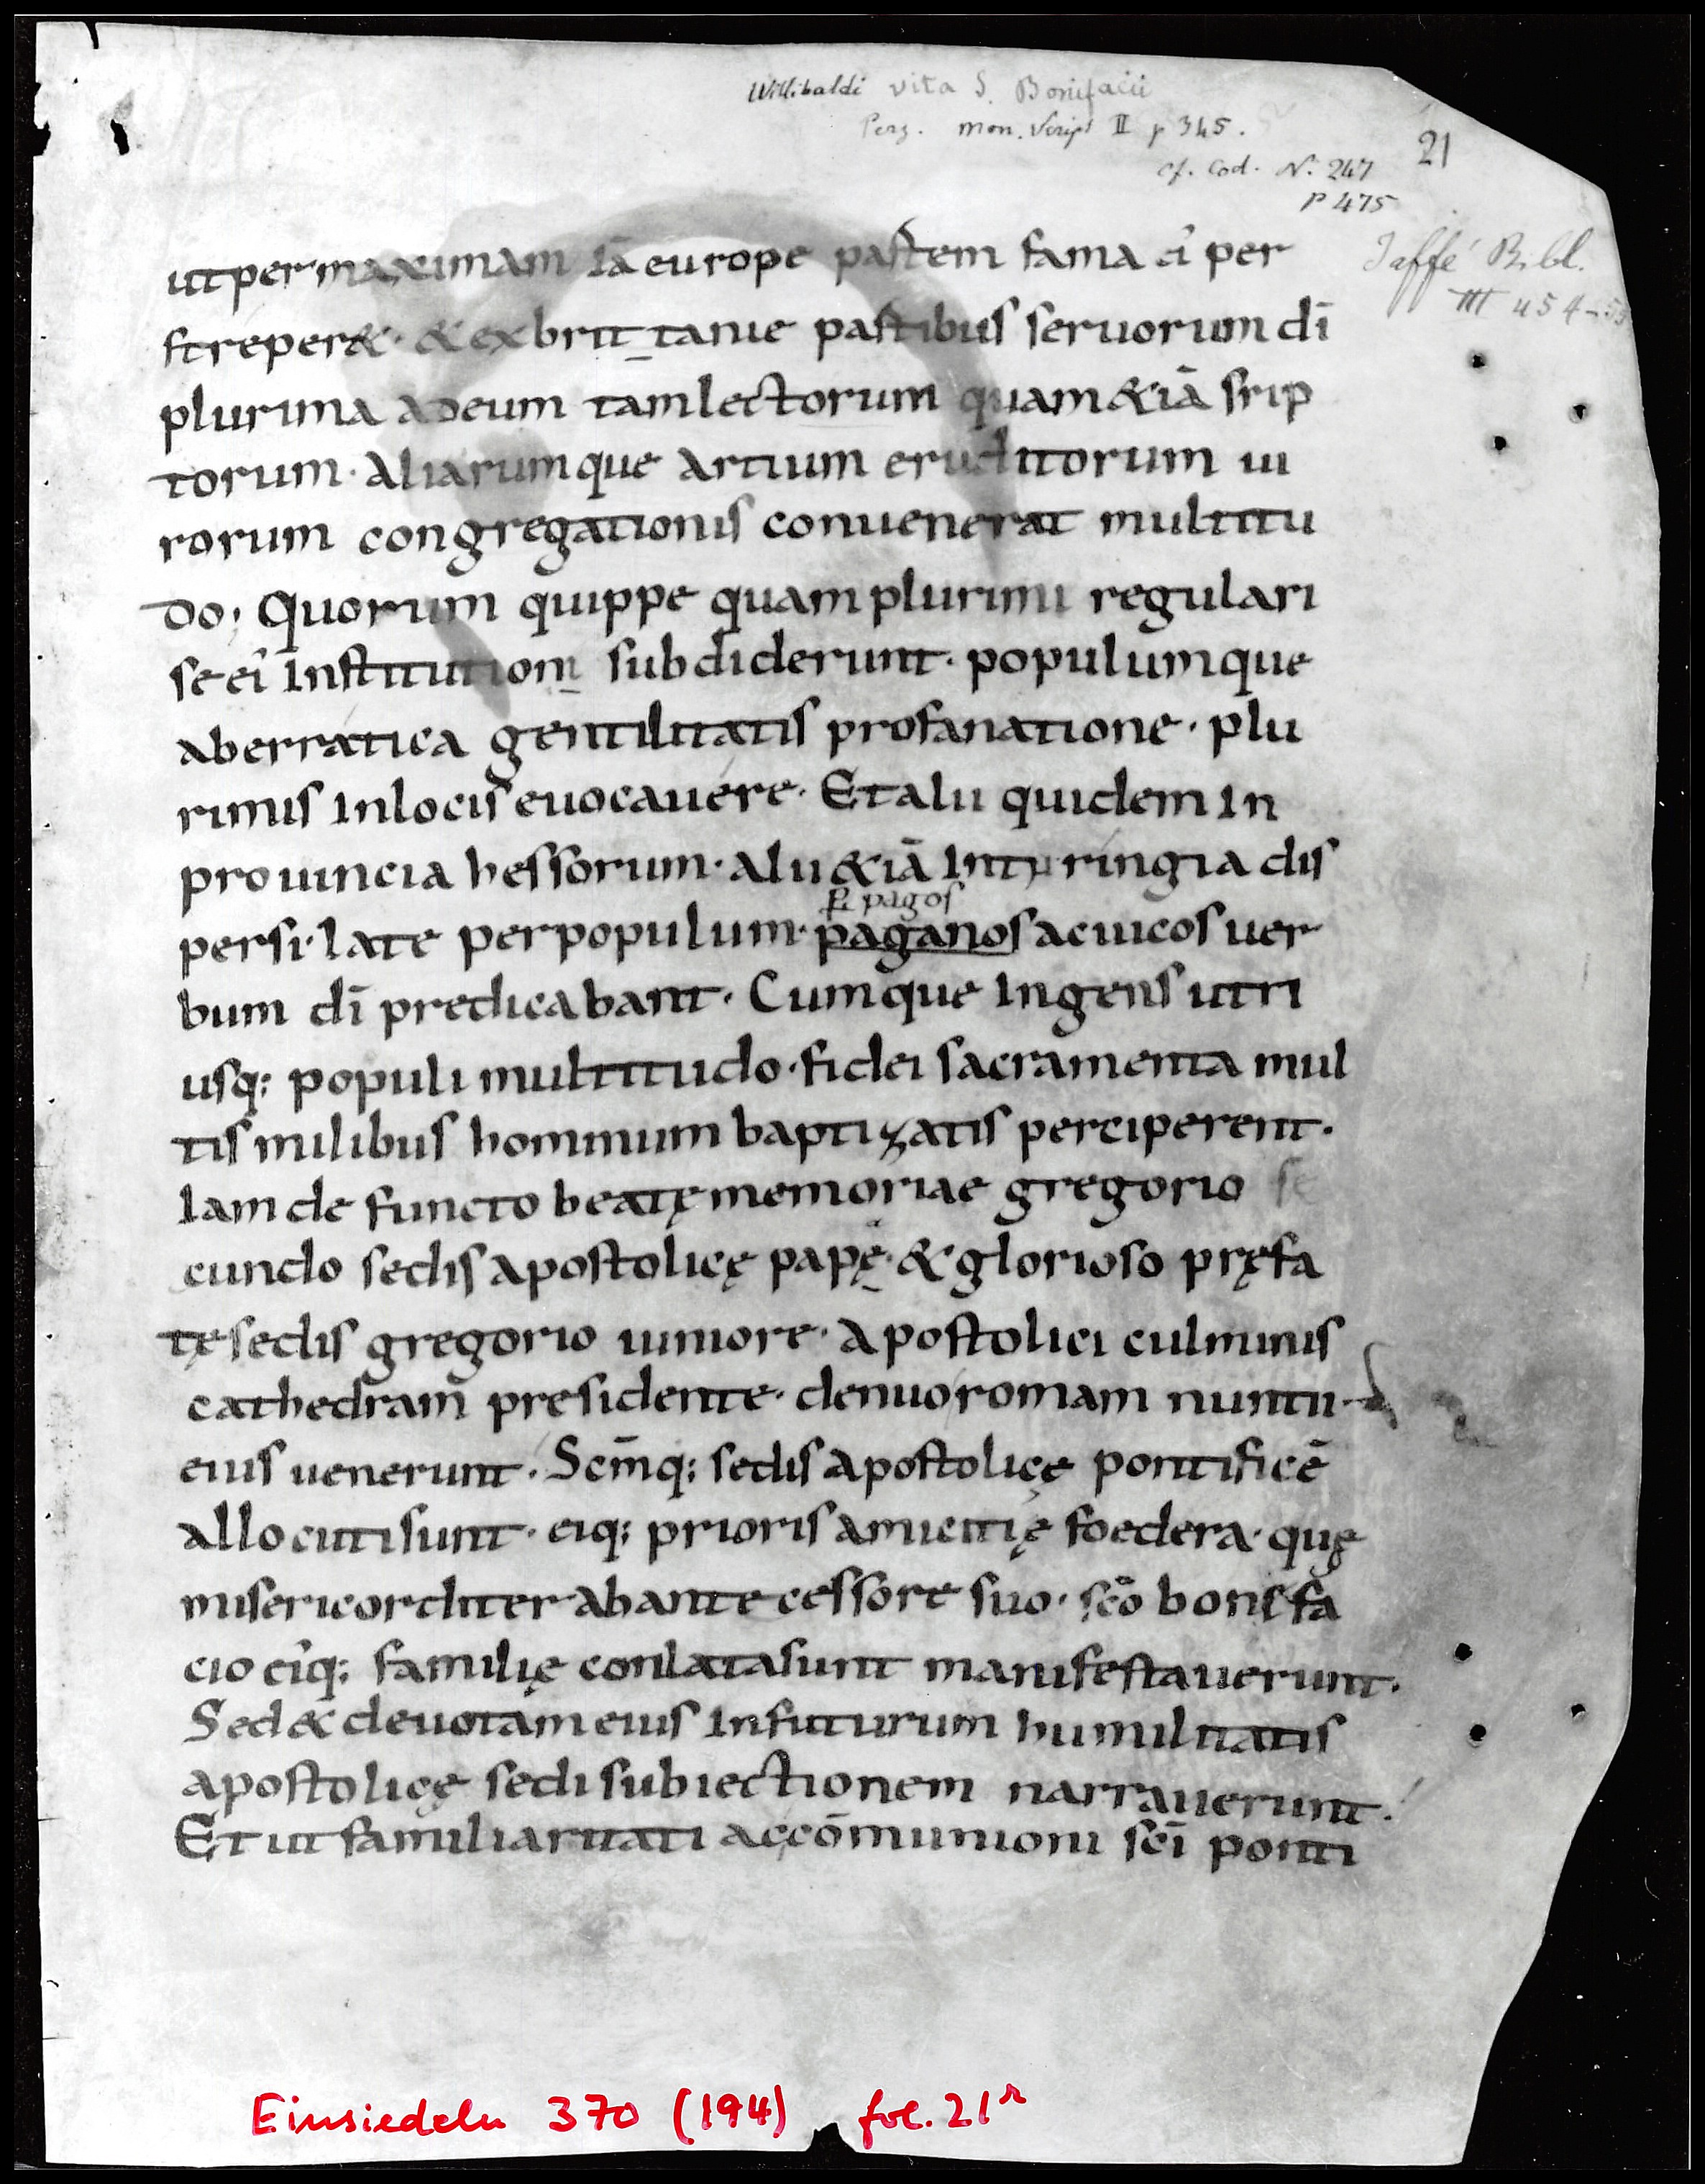 Willibaldi vita S. Bonifacii
Perz. mon. Script II p 345.
21
cf. Cod. N. 247
p 475
Jaffé Bibl.
III 454-
ut per maximam iā europe partem fama ei per
streper&· & ex brittanie partibus seruorum dī
plurima ad eum tam lectorum quam &iā srip
torum· aliarumque artium eruditorum ui
rorum congregationis conuenerat multitu
do; Quorum quippe quam plurimi regulari
se ei institutioni subdiderunt· populumque
ab erratica gentilitatis profanatione· plu
rimis in locis euocauere· Et alii quidem in
prouincia hessorum· alii &iā in tyringia dis
pagos
persi· late per populum· paganos ac uicos uer
bum dī predicabant· Cumque ingens utri
usq; populi multitudo· fidei sacramenta mul
tis milibus hominum baptizatis perciperent·
Iam defuncto beatę memoriae gregorio se
cundo sedis apostolicę papę· & glorioso pręfa
tę sedis gregorio iuniore· apostolici culminis
cathedram presidente· denuo romam nuntii·
eius uenerunt· Scm̄q; sedis apostolicę pontificē
allocuti sunt· eiq; prioris amicitię foedera· quę
misericorditer ab antecessore suo· scō bonifa
cio eiq; familię conlata sunt manifestauerunt·
Sed & deuotam eius in futurum humilitatis
apostolicę sedi subiectionem narrauerunt·
Et ut familiaritati ac cōmunioni scī ponti
Einsiedeln 370 (194) fol. 21r